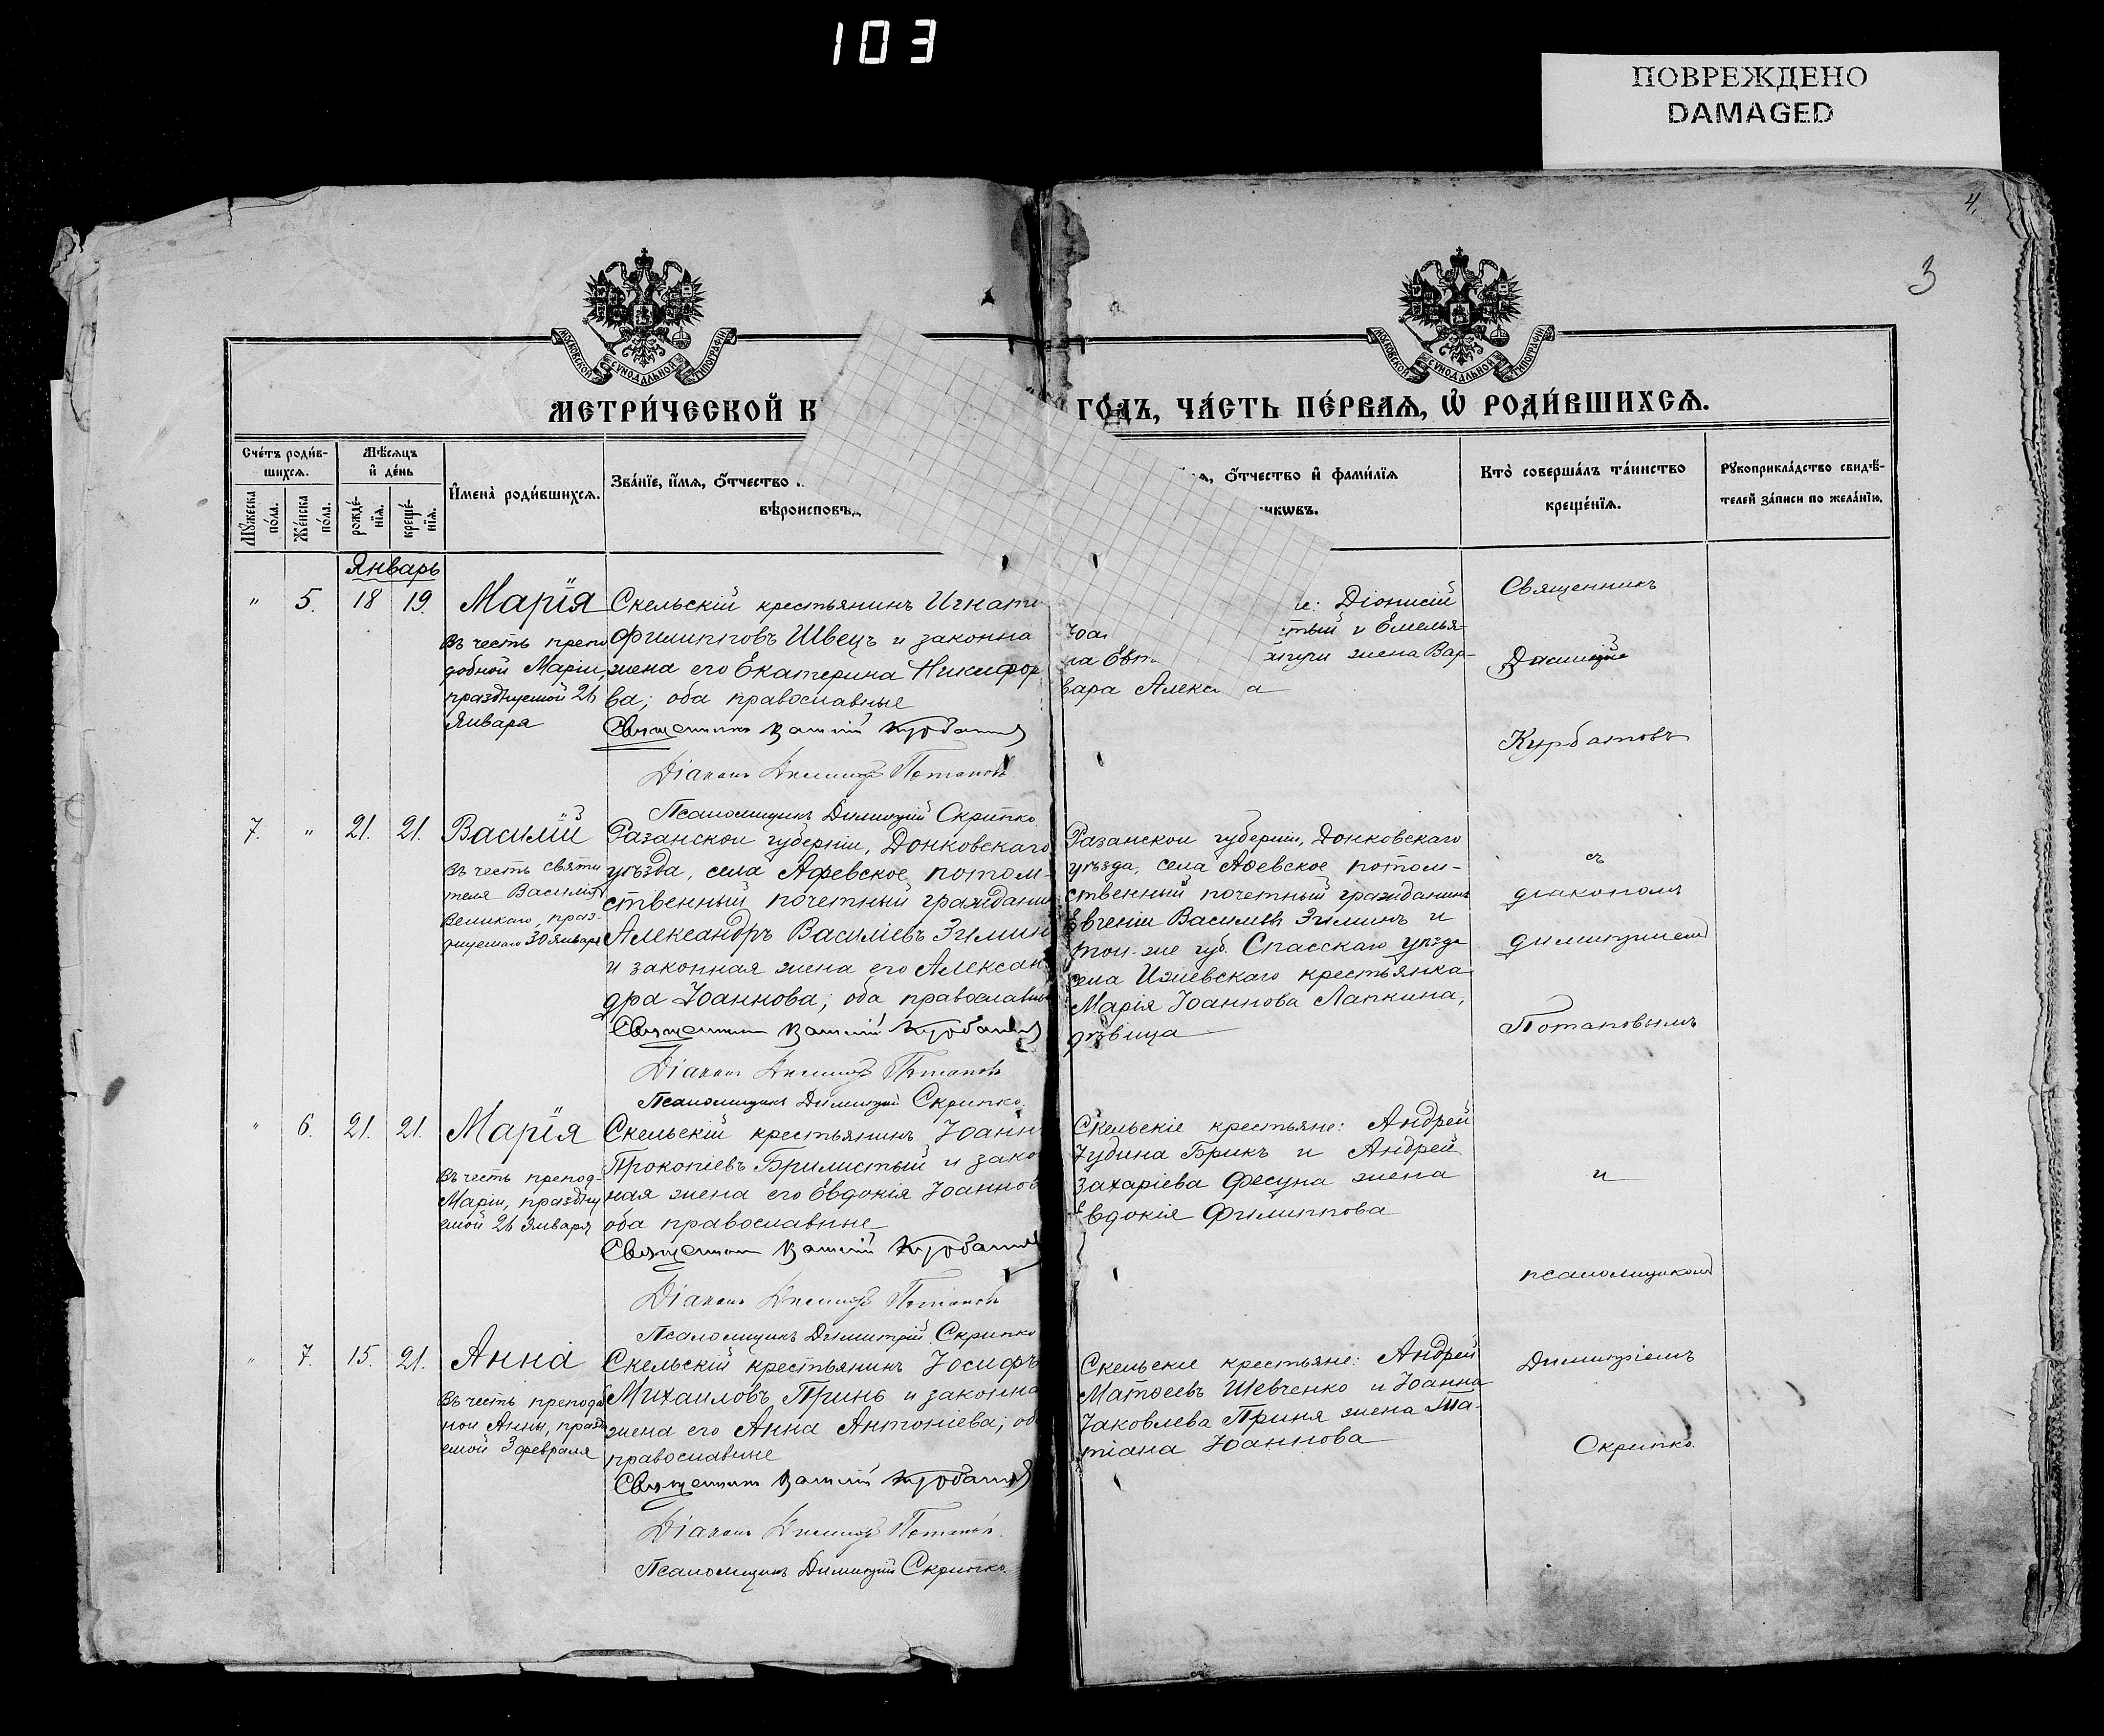 103
ПОВРЕЖДЕНО
DAMAGED
4.
3
МОСКОВСКОЙ СѴНОДАЛЬНОЙ ТИПОГРАФІИ
МОСКОВСКОЙ СѴНОДАЛЬНОЙ ТИПОГРАФІИ
МЕТРИ́ЧЕСКОЙ К
ГО́ДЪ, ЧА́СТЬ ПЕ́РВАЯ, Ѡ РОДИ́ВШИХСЯ.
Сче́тъ роди́в-
шихся.
Мѣ́сяцъ
и де́нь
Мꙋ́жеска по́ла.
Же́нска по́ла.
рожде́-
нїя.
креще́-
нїя.
И҆мена̀ роди́вшихся.
Зва́нїе, и҆́мя, ѻ҆́тчество
вѣроисповѣд
ѻ҆́тчество и҆ фами́лїя
никѡвъ.
Кто̀ соверша́лъ та́инство
креще́нїя.
Рꙋкоприкла́дство свидѣ́-
телей за́писи по жела́нїю.
Январь
" 5. 18 19. Марія
Въ честь препо
добной Маріи,
празднуемой 26
Января
Скельскій крестьянинъ Игнати
Филипповъ Швецъ и законна
жена его Екатерина Никифор
ва; оба православные
Священникъ Василій Курбатовъ
Діаконъ Димитрій Потаповъ
Псаломщикъ Димитрій Скрипко
е: Діонисій
тый и Емелья-
жена Вар-
вара Алекс а
Священникъ
Василій
Курбатовъ
7. " 21. 21. Василій
Въ честь святи
теля Василія
Великаго, праз-
днуемаго 30 Января
Разанской губерніи, Донковскаго
уѣзда, села Афевское, потом-
ственный почетный гражданин
Александръ Василіевъ Зимин
и законная жена его Алексан
дра Іоаннова; оба православны
Священникъ Василій Курбатовъ
Діаконъ Димитрій Потаповъ
Псаломщикъ Димитрій Скрипко.
Разанской губерніи, Донковскаго
уѣзда, села Афевское, потом-
ственный почетный гражданинъ
Евгеній Василіевъ Зиминъ и
той-же губ. Спасскаго уѣзда
села Ижевскаго крестьянка
Марія Іоаннова Лапкина,
дѣвица
съ
діакономъ
Димитріемъ
Потаповымъ
" 6. 21. 21. Марія
Въ честь препод-
Маріи, праздну
емой 26 Января
Скельскій крестьянинъ Іоанн
Прокопіевъ Брилистый и зако
ная жена его Евдокія Іоаннов
оба православные
Священникъ Василій Курбатовъ
Діаконъ Димитрій Потаповъ
Псаломщикъ Димитрій Скрипко
Скельскіе крестьяне: Андрей
Іудина Брикъ и Андрей
Захаріева Фесуна жена
Евдокія Филиппова
и
псаломщикомъ
" 7. 15. 21. Анна
Въ честь преподоб
ной Анны, празд
емой 3 февраля
Скельскій крестьянинъ Іосифъ
Михаиловъ Принь и законна
жена его Анна Антоніева; об
православные
Священникъ Василій Курбатовъ
Діаконъ Димитрій Потаповъ.
Псаломщикъ Димитрій Скрипко.
Скельскіе крестьяне: Андрей
Матѳеевъ Шевченко и Іоанна
Іаковлева Приня жена Та-
тіана Іоаннова
Димитріемъ
Скрипко.